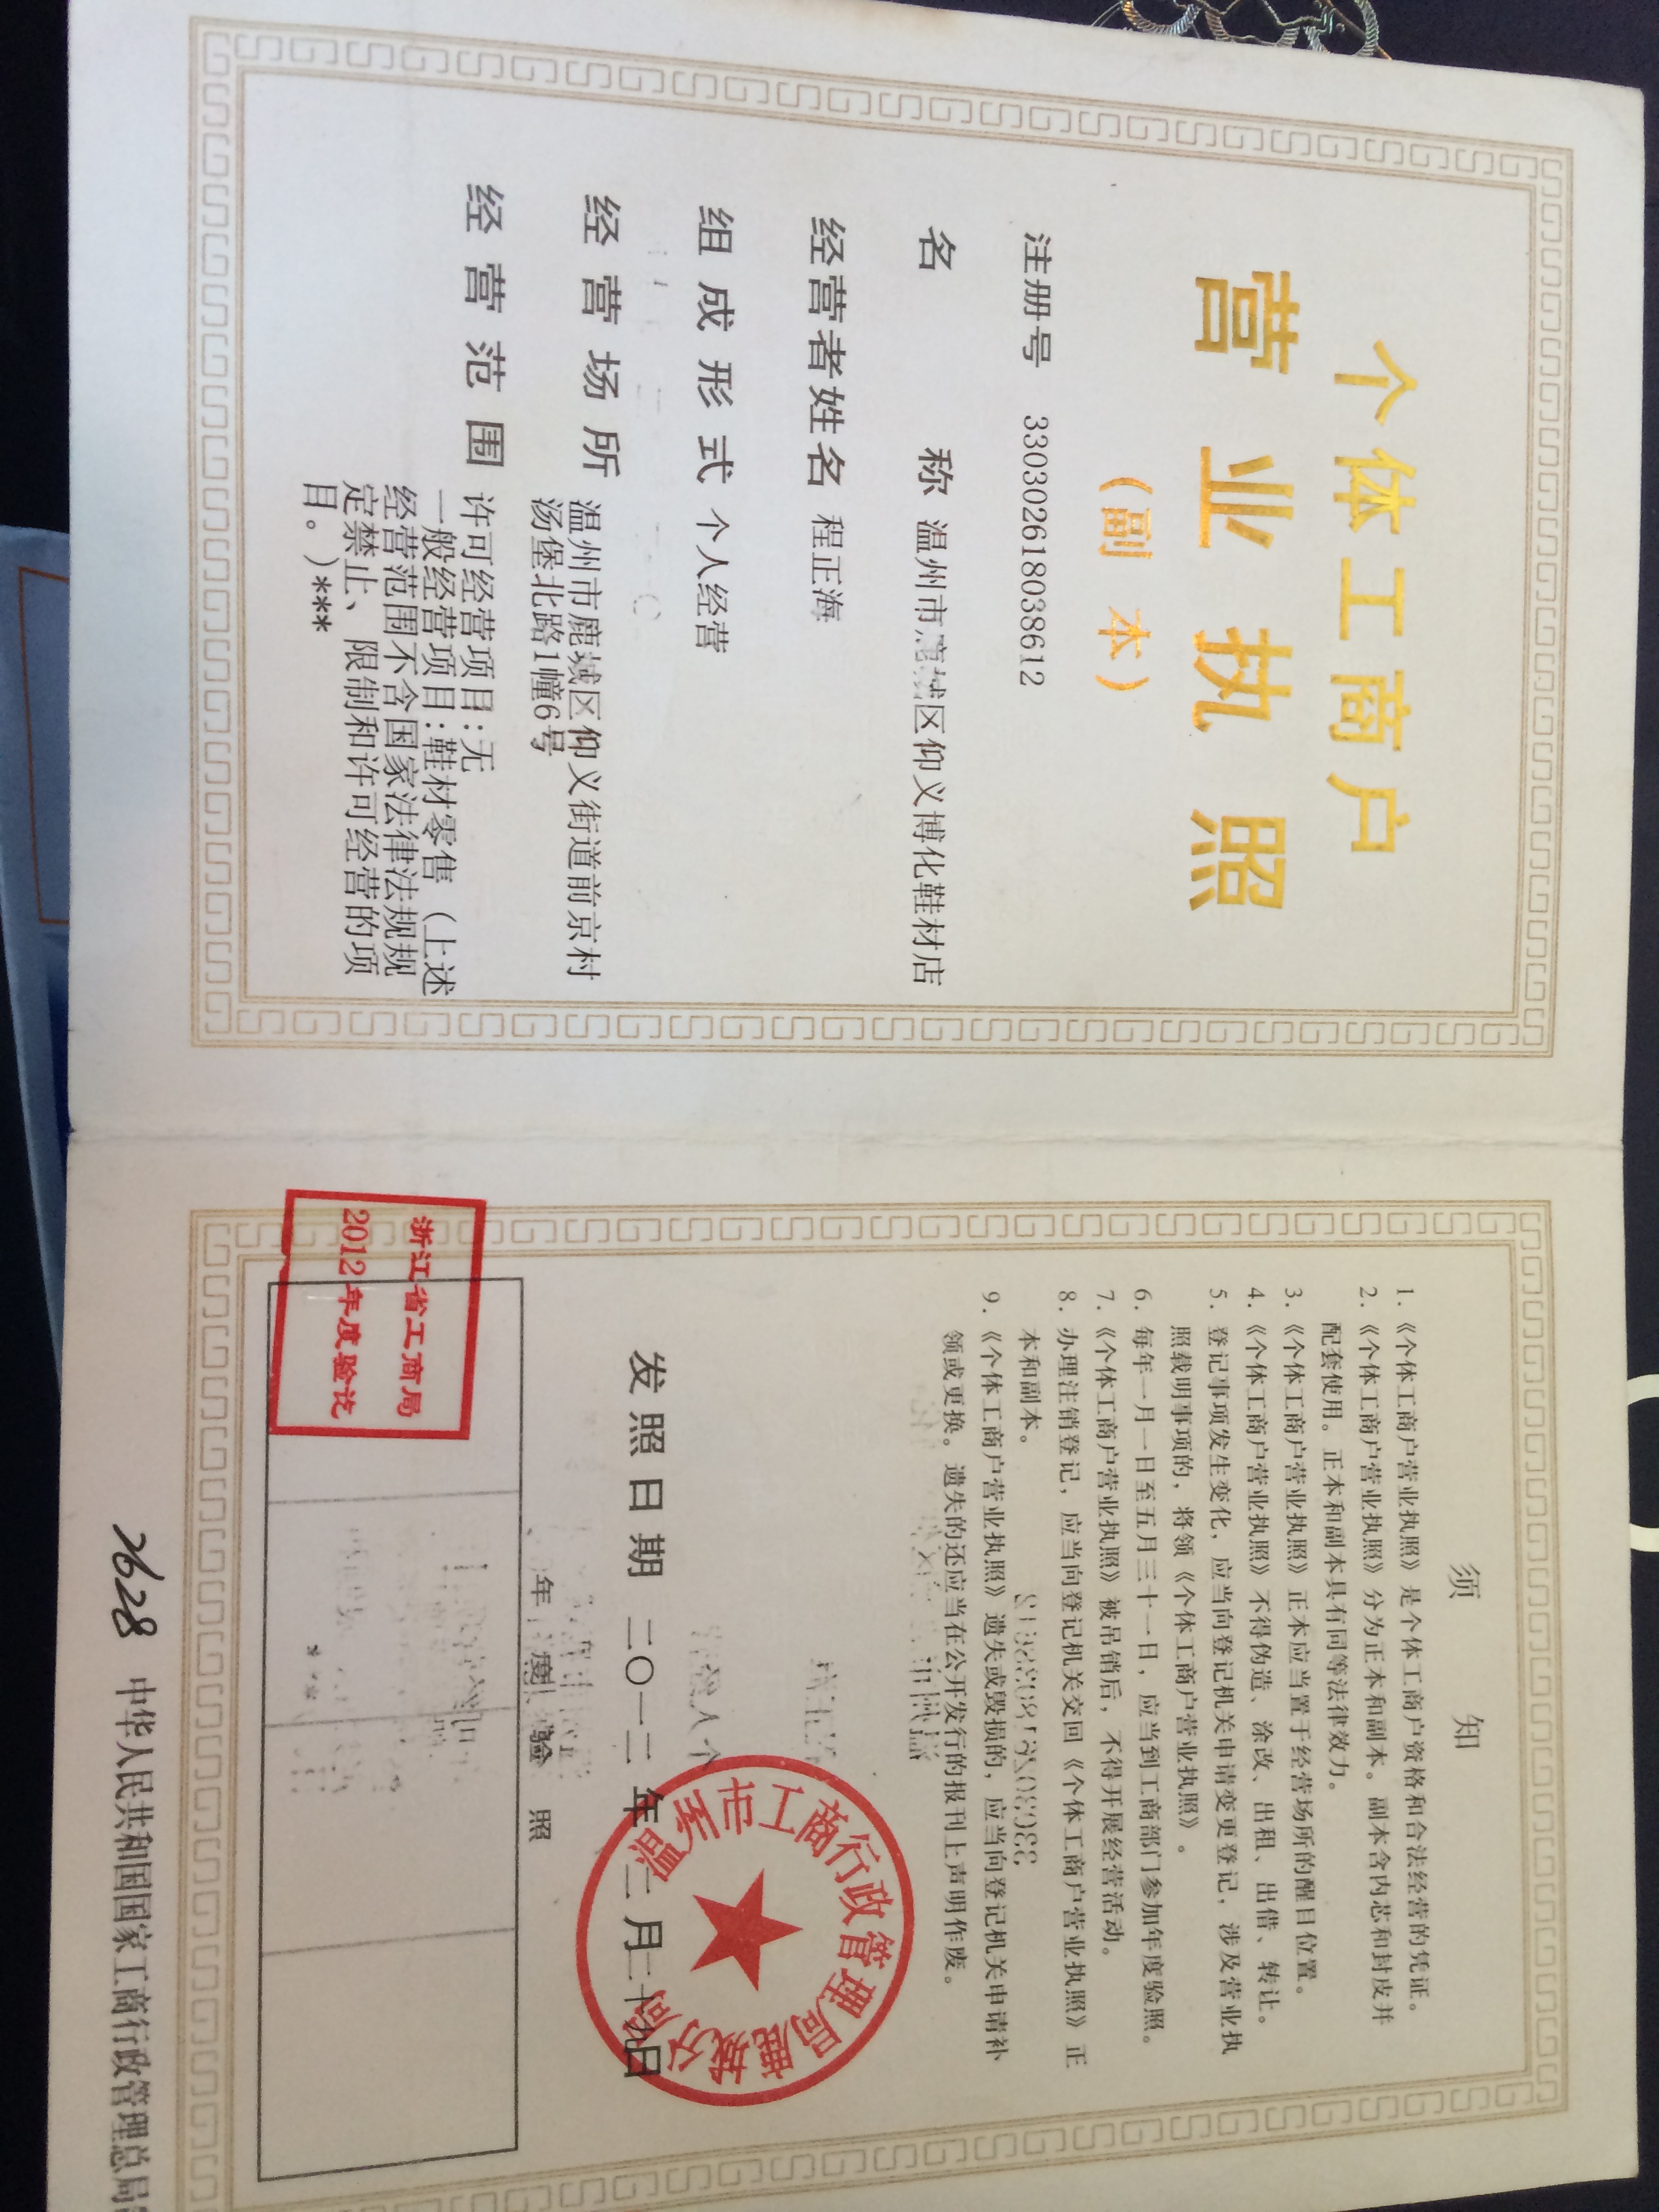 个体工商户
营业执照
（副 本）
注册号 330302618038612
名 称 温州市鹿城区仰义博化鞋材店
经营者姓名 程正海
组成形式 个人经营
经营场所 温州市鹿城区仰义街道前京村
汤堡北路1幢6号
经营范围 许可经营项目:无
一般经营项目:鞋材零售（上述
经营范围不含国家法律法规规
定禁止、限制和许可经营的项
目。）***
须 知
1.《个体工商户营业执照》是个体工商户资格和合法经营的凭证。
2.《个体工商户营业执照》分为正本和副本。副本含内芯和封皮并
配套使用。正本和副本具有同等法律效力。
3.《个体工商户营业执照》正本应当置于经营场所的醒目位置。
4.《个体工商户营业执照》不得伪造、涂改、出租、出借、转让。
5. 登记事项发生变化，应当向登记机关申请变更登记，涉及营业执
照载明事项的，将领《个体工商户营业执照》。
6. 每年一月一日至五月三十一日，应当到工商部门参加年度验照。
7.《个体工商户营业执照》被吊销后，不得开展经营活动。
8. 办理注销登记，应当向登记机关交回《个体工商户营业执照》正
本和副本。
9.《个体工商户营业执照》遗失或毁损的，应当向登记机关申请补
领或更换。遗失的还应当在公开发行的报刊上声明作废。
温州市工商行政管理局鹿城分局
发照日期 二〇一二年 月二十九日
年度验照
浙江省工商局
2012年度验讫
2628 中华人民共和国国家工商行政管理总局